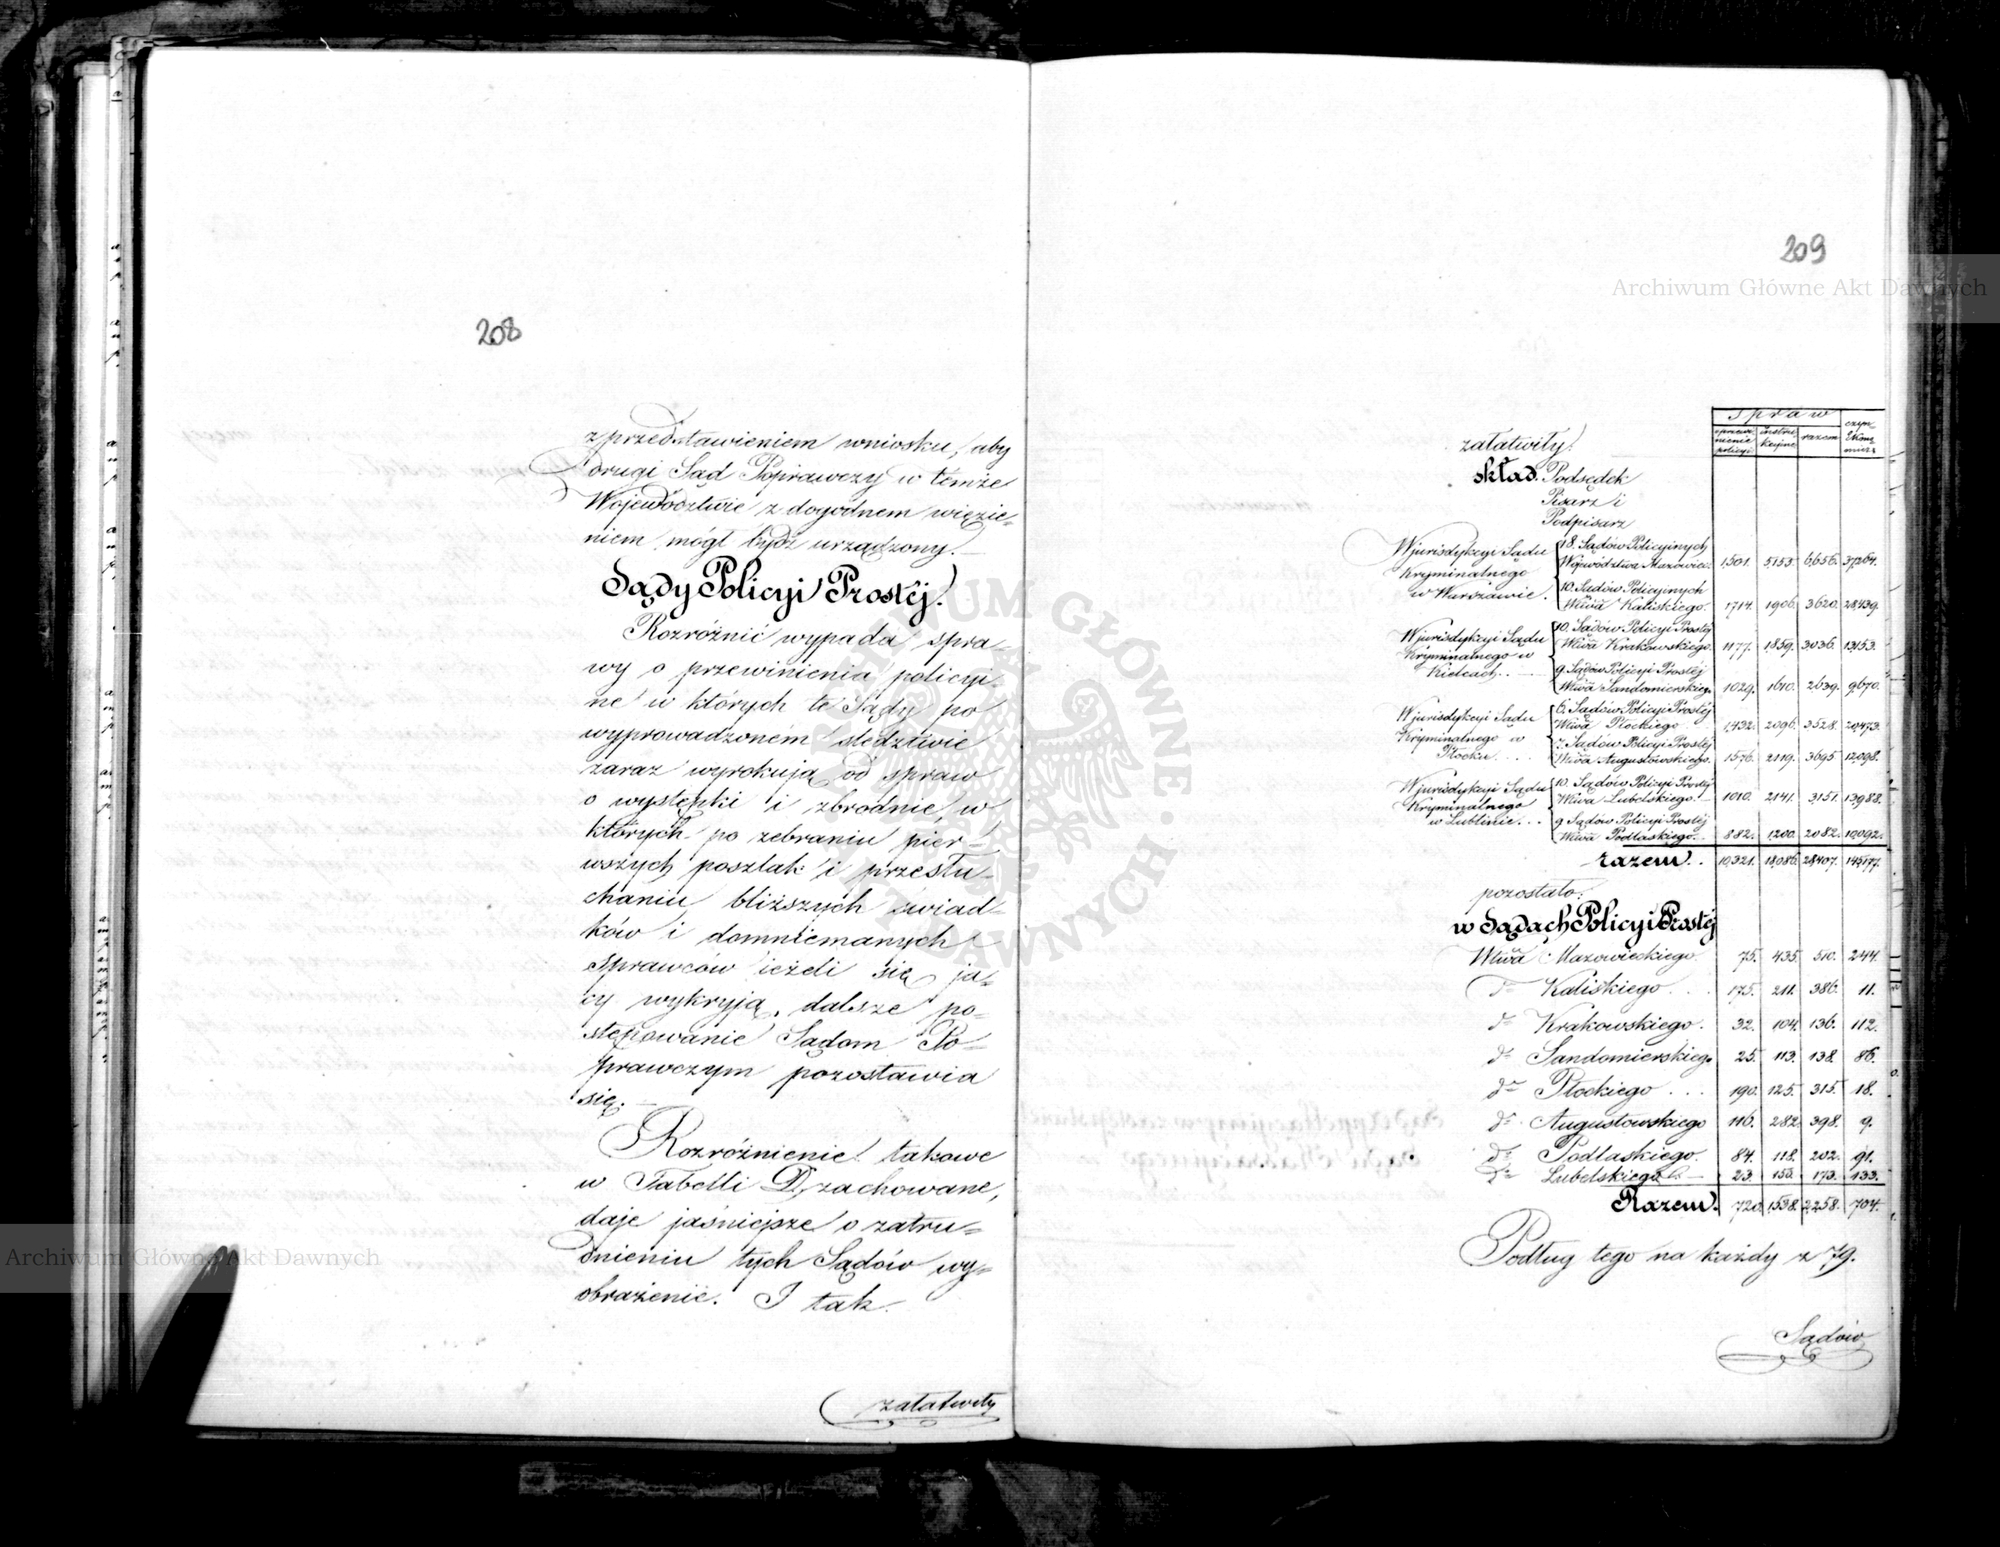 208
z przedstawieniem wniosku, aby
drugi Sąd Poprawczy w temże
Województwie z dogodnem więzie-
niem mógł bydź urządzony. —
Sądy Policyi Prostéj.
Rozróżnić wypada spra-
wy o przewinienia policyi-
ne w których te Sądy po
wyprowadzoném śledztwie
zaraz wyrokują od spraw
o występki i zbrodnie, w
których po zebraniu pier-
wszych poszlak i przesłu-
chaniu bliższych świad-
ków i domniemanych
sprawców ieżeli się ja-
cy wykryją, dalsze po-
stępowanie Sądom Po-
prawczym pozostawia
się. —
Rozróżnienie takowe
w Tabelli D, zachowane,
daje jaśniejsze o zatru-
dnieniu tych Sądów wy-
obrażenie. I tak
załatwiły
209
Spraw
razem
załatwiły.
skład. Podsędek
Pisarz i
Podpisarz
W jurisdykcyi Sądu Kryminalnego w Warszawie.
18. Sądów Policyjnych Województwa Mazowiec: 1,501. 5,153. 6,656. 37,264.
10. Sądów Policyjnych Wtwa Kaliskiego. 1714. 1906. 3620. 28,439.
W jurisdykcyi Sądu Kryminalnego w Kielcach. . —
10. Sądów Policyi Prostéj Wtwa Krakowskiego. 1177. 1,859. 3036. 13,153.
9. Sądów Policyi Prostéj Wtwa Sandomierskieg. 1029. 1610. 2639. 9,670.
W jurisdykcyi Sądu Kryminalnego w Płocku. . . .
6. Sądów Policyi Prostéj Wtwa Płockiego 1,432. 2096. 3528. 20,473.
7. Sądów Policyi Prostéj Wtwa Augustowskiego. 1576. 2119. 3695. 12,098.
W jurisdykcyi Sądu Kryminalnego w Lublinie. . .
10. Sądów Policyi Prostéj Wtwa Lubelskiego. — 1010. 2141. 3151. 13,988.
9 Sądów Policyi Prostéj Wtwa Podlaskiego. 882. 1,200. 2082. 10,092.
razem. . 10,321. 18,086. 28,407. 145,177.
pozostało.
w Sądach Policyi Prostéj
Wtwa Mazowieckiego 75. 435. 510. 244.
dto Kaliskiego . . . 175. 211. 386. 11.
dto Krakowskiego. 32. 104. 136. 112.
dto Sandomierskiego 25. 113. 138. 86.
dto Płockiego . . . 190. 125. 315. 18.
dto Augustowskiego 116. 282. 398. 9.
dto Podlaskiego. 84. 118. 202. 91.
dto Lubelskiego. — 23. 150. 173. 133.
Razem. 720. 1538. 2,258. 704.
Podług tego na każdy z 79.
Sądów
Archiwum Główne Akt Dawnych
Archiwum Główne Akt Dawnych
ARCHIWUM GŁÓWNE AKT DAWNYCH